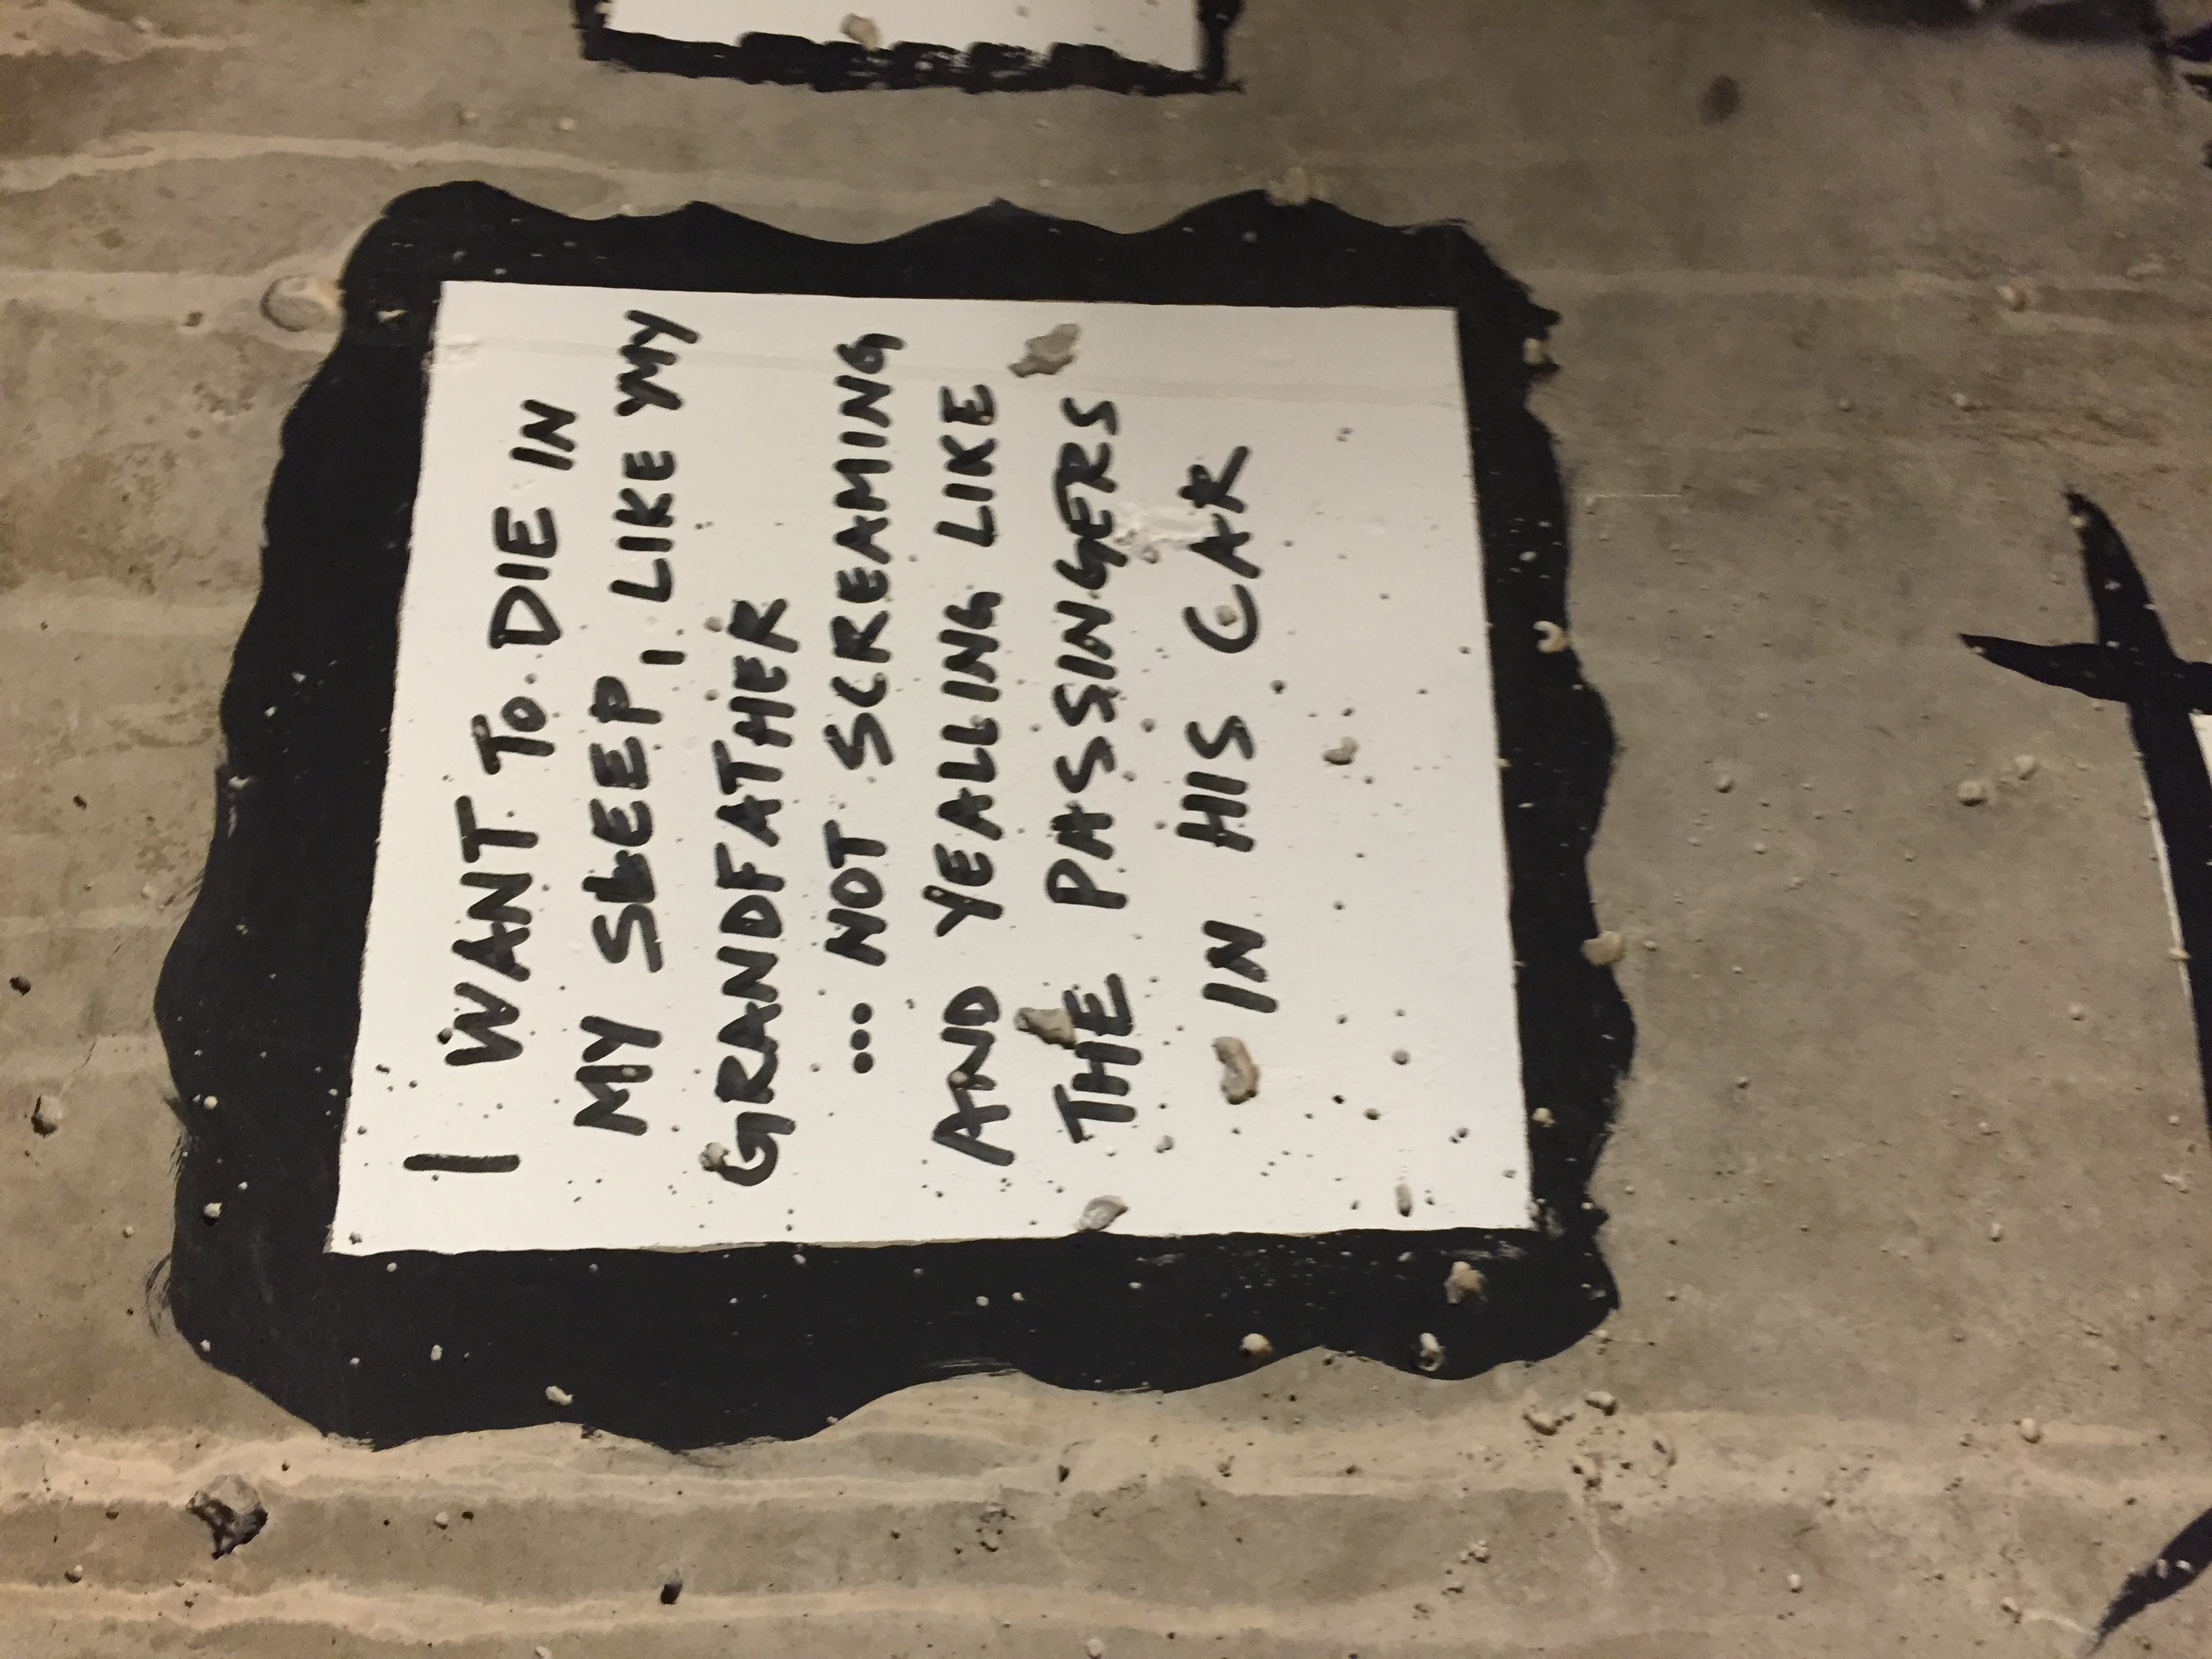 I WANT TO DIE IN
MY SLEEP, LIKE MY
GRANDFATHER
... NOT SCREAMING
AND YEALLING LIKE
THE PASSINGERS
IN HIS CAR